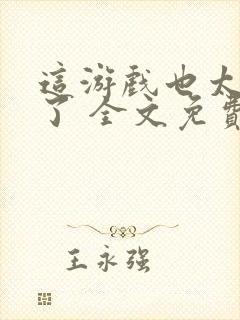 這游戲也太
了 全文免費
王永强